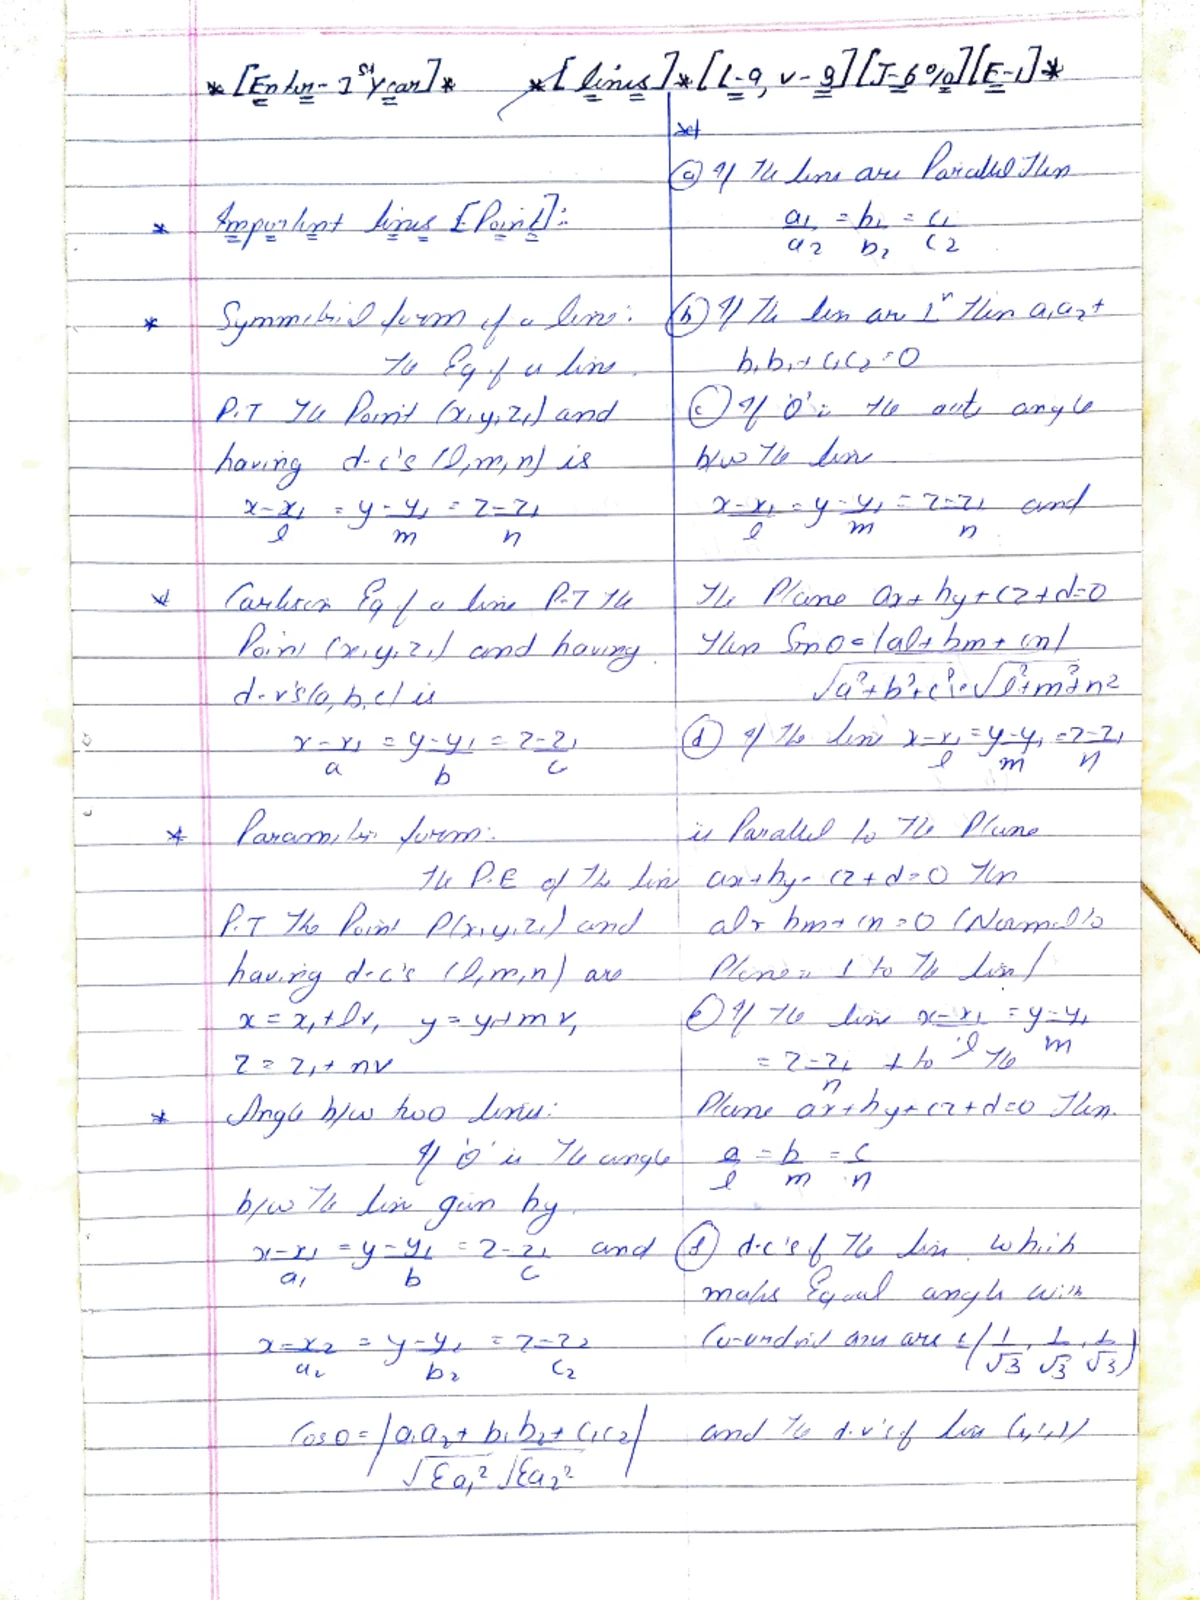 * [Enter - 1st Year] * * [lines] * [L-9, V-9] [J-6%] [E-1] *
* Important lines [Point]:
* Symmetrial form of a line:
The Eq of a line
P.T the Point (x, y, z,) and
having d-c's (l, m, n) is
x-x₁/l = y-y₁/m = z-z₁/n
* Cartesian Eq of a line P.T the
Point (x, y, z,) and having
d.r's (a, b, c) is
x-x₁/a = y-y₁/b = z-z₁/c
* Parametric form:
The P.E of the line
P.T the Point P(x, y, z,) and
having d-c's (l, m, n) are
x = x₁+lr, y = y₁+mr,
z = z₁+nr
* Angle b/w two lines:
If 'θ' is the angle
b/w the line given by
x-x₁/a₁ = y-y₁/b = z-z₁/c and
x-x₂/a₂ = y-y₁/b₂ = z-z₂/c₂
Cosθ = |a₁a₂+b₁b₂+c₁c₂/√Σa₁² √Σa₂²|
*
(a) If the line are Parallel then
a₁/a₂ = b₁/b₂ = c₁/c₂
(b) If the line are ⊥r then a₁a₂+
b₁b₂+c₁c₂=0
(c) If 'θ' is the acute angle
b/w the line
x-x₁/l = y-y₁/m = z-z₁/n and
the Plane ax+by+cz+d=0
then Sinθ = |al+bm+cn|/√a²+b²+c² . √l²+m²+n²
(d) If the line x-x₁/l = y-y₁/m = z-z₁/n
is Parallel to the Plane
ax+by+cz+d=0 then
al+bm+cn=0 (Normal to
Plane is ⊥ to the line)
(e) If the line x-x₁/l = y-y₁/m
= z-z₁/n ⊥ to the
Plane ax+by+cz+d=0 then.
a/l = b/m = c/n
(f) d-c's of the line which
makes Equal angle with
Co-ordinate axes are (1/√3, 1/√3, 1/√3)
and the d.r's of line (1,1,1)